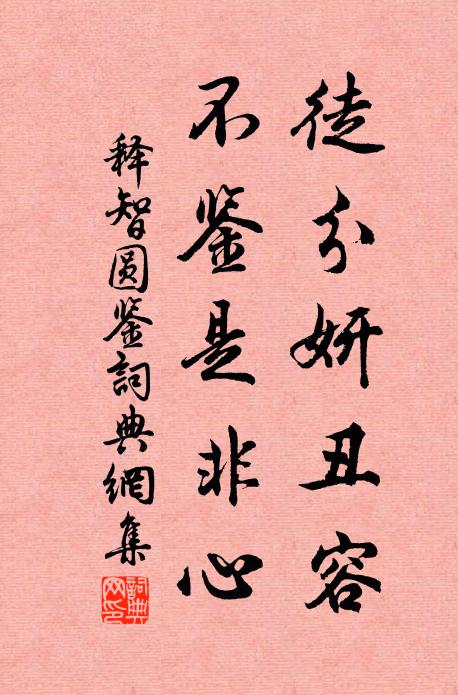 徒分妍丑容
不鉴是非心
释智圆鉴詞典網集
詞典
网印